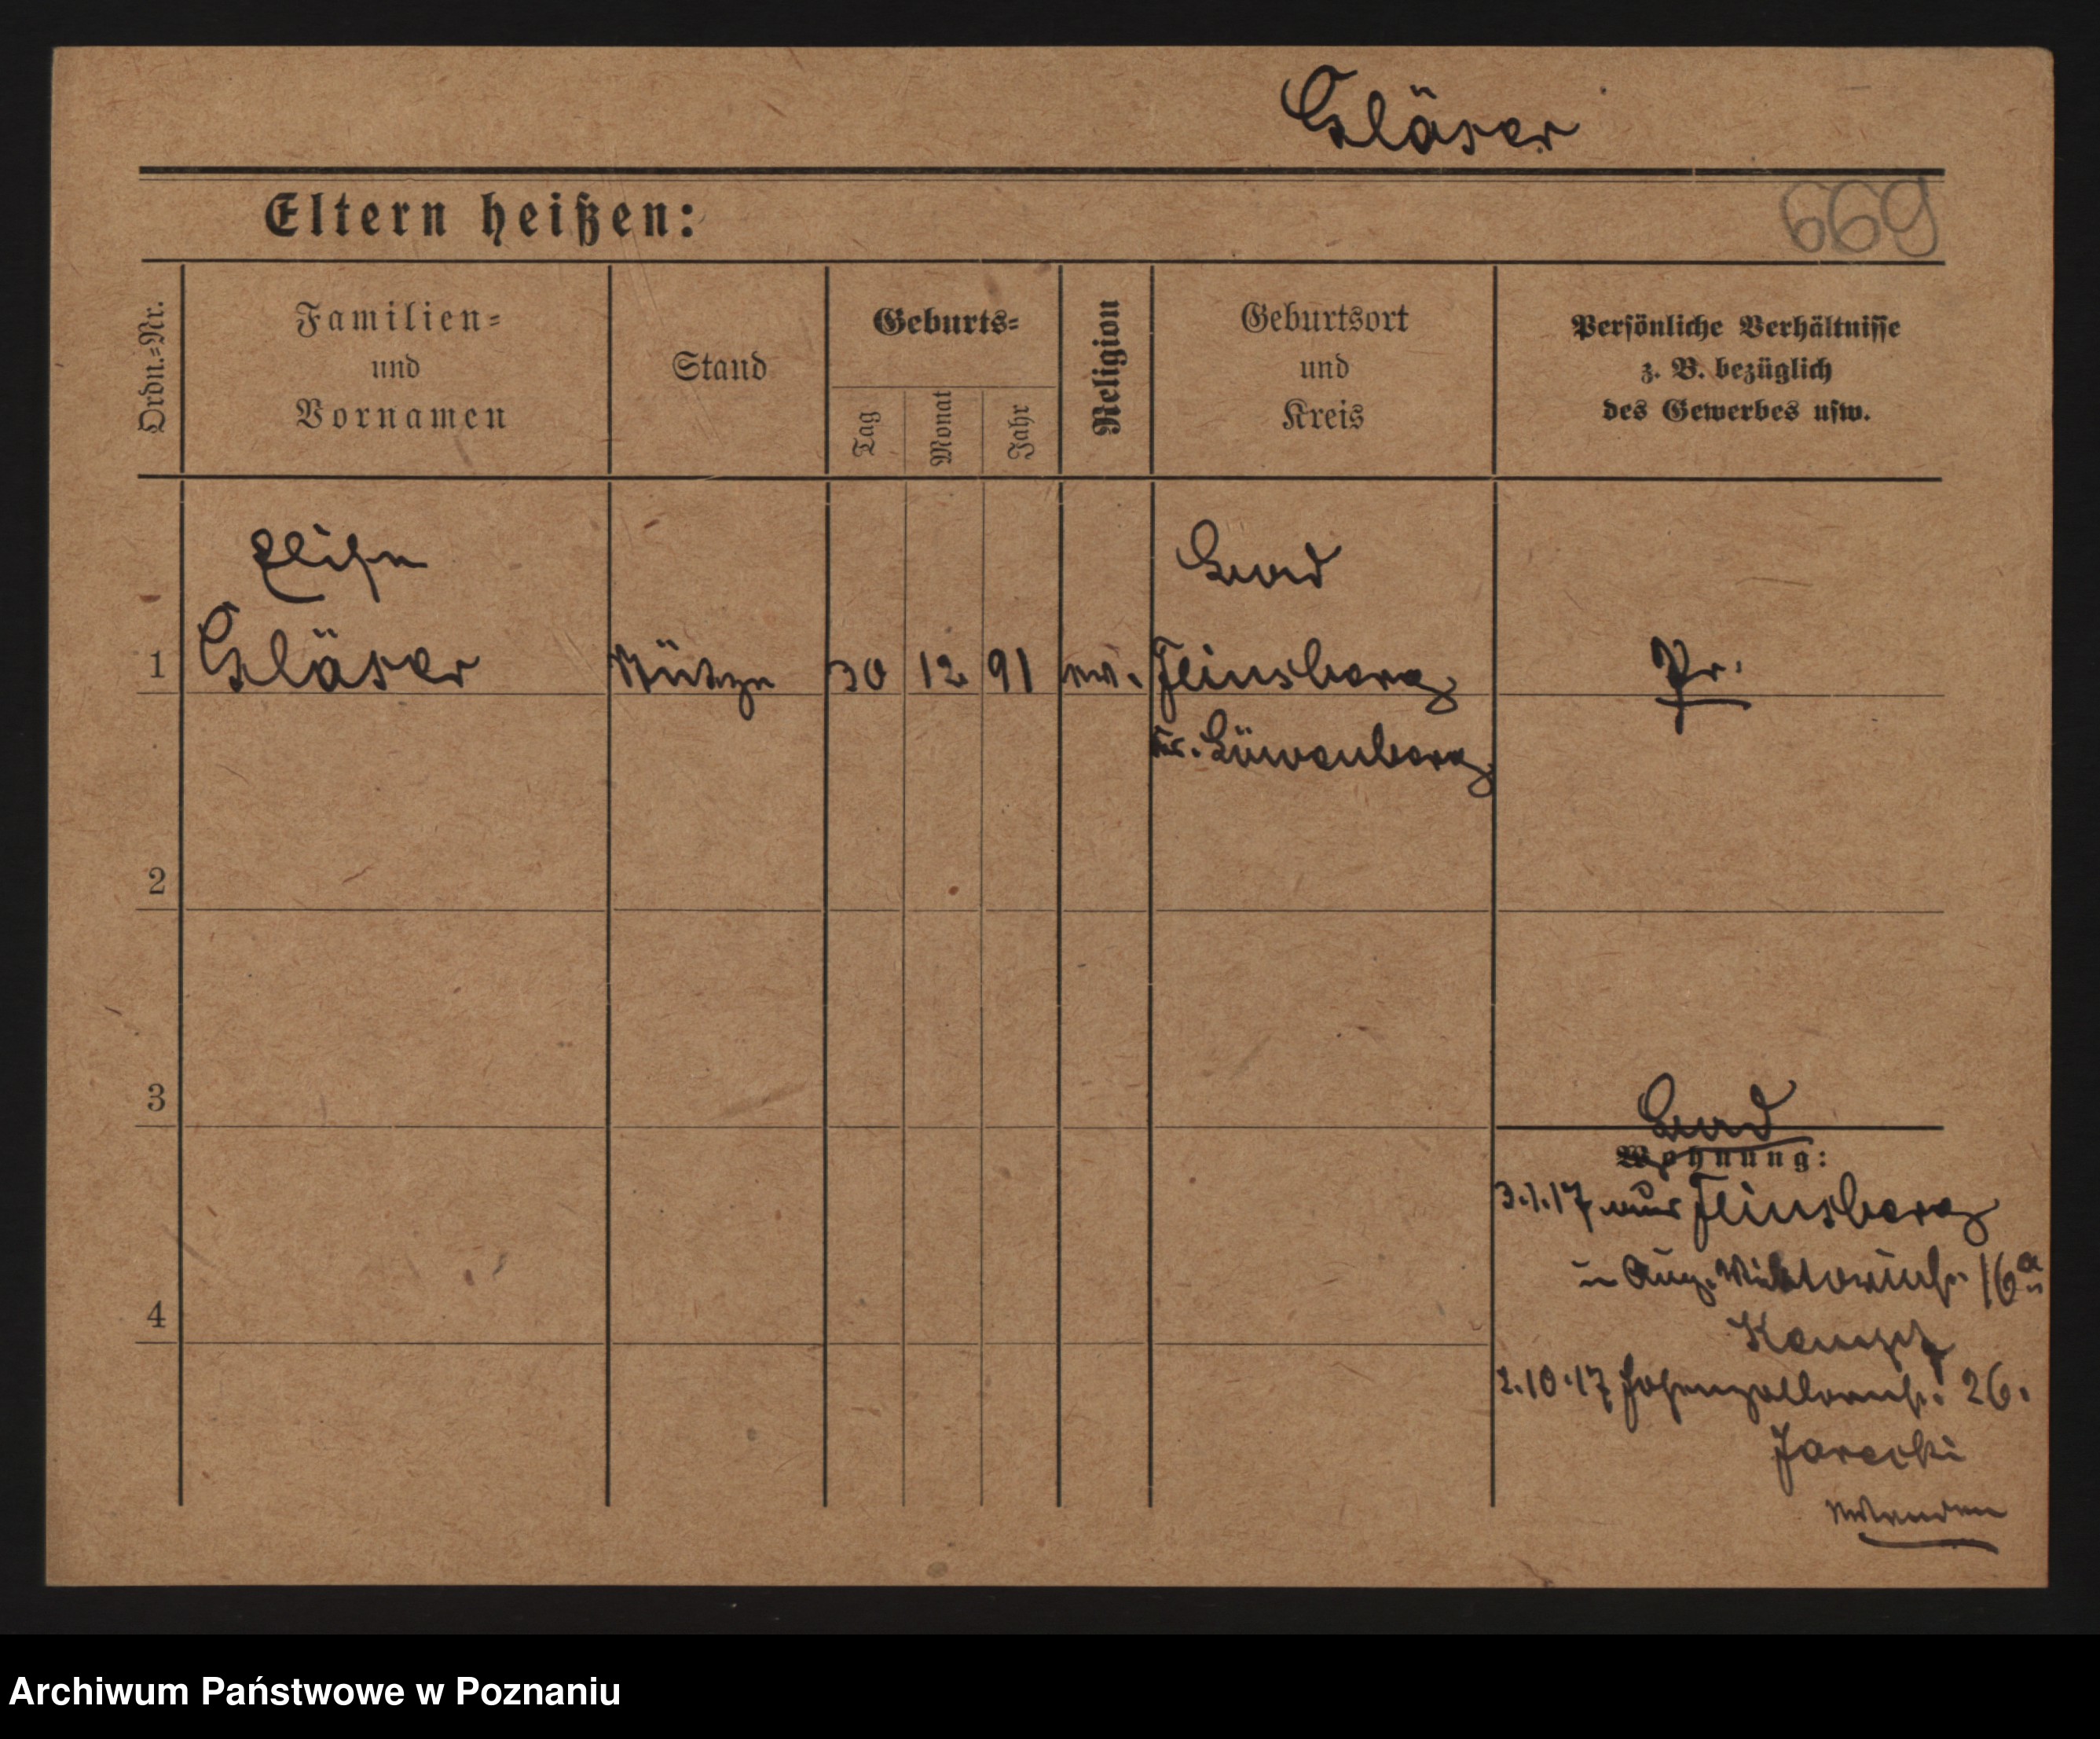 Gläser
669
Eltern heißen:
Ordn.=Nr.
Familien=
und
Vornamen
Stand
Geburts=
Tag
Monat
Jahr
Religion
Geburtsort
und
Kreis
Persönliche Verhältnisse
z. B. bezüglich
des Gewerbes usw.
Bad
1 Gläser 30 12 91 ev. Flinsberg Pr.
Kr. Löwenberg
2
3
Bad
Wohnung:
3.1.17 aus Flinsberg
n Aug. Viktoriastr. 16a
2.10.17 Hohenzollernstr. 26.
Jarecki
wenden
4
Archiwum Państwowe w Poznaniu